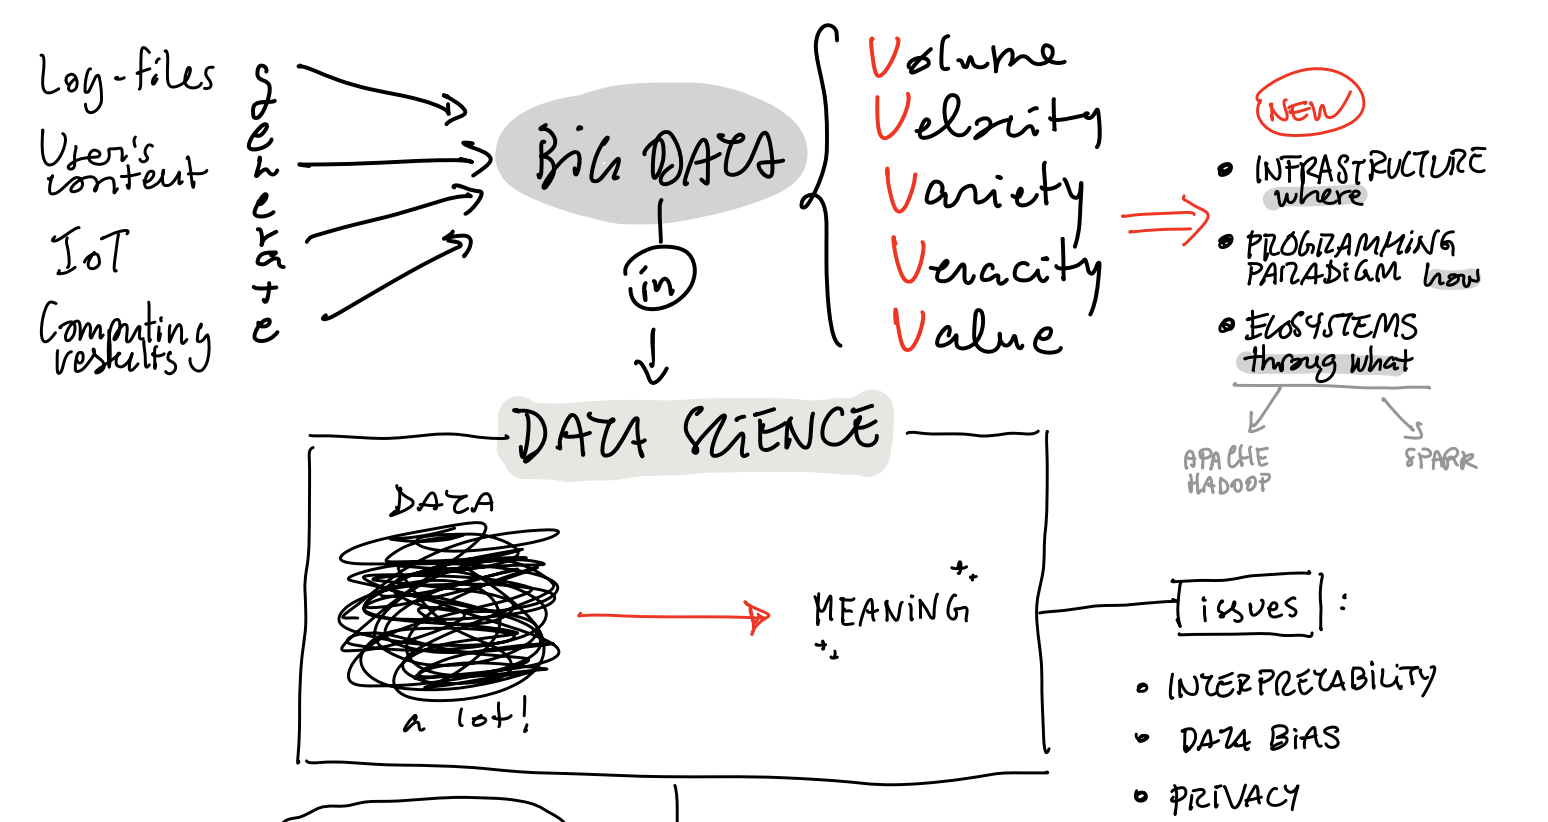 Log-files
User's
content
IoT
Computing
results
generate
BIG DATA
in
Volume
Velocity
Variety
Veracity
Value
NEW
• INFRASTRUCTURE
where
• PROGRAMMING
PARADIGM how
• ECOSYSTEMS
throug what
APACHE
HADOOP
SPARK
DATA SCIENCE
DATA
a lot!
MEANING
issues :
• INTERPRETABILITY
• DATA BIAS
• PRIVACY